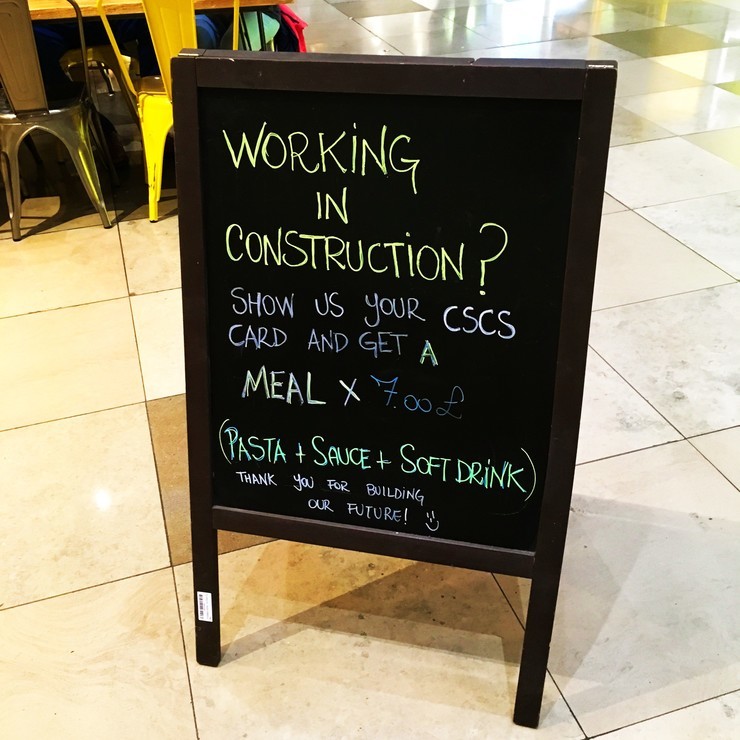 WORKING
IN
CONSTRUCTION?
SHOW US YOUR CSCS
CARD AND GET A
MEAL X 7.00£
(PASTA + SAUCE + SOFT DRINK)
THANK YOU FOR BUILDING
OUR FUTURE!